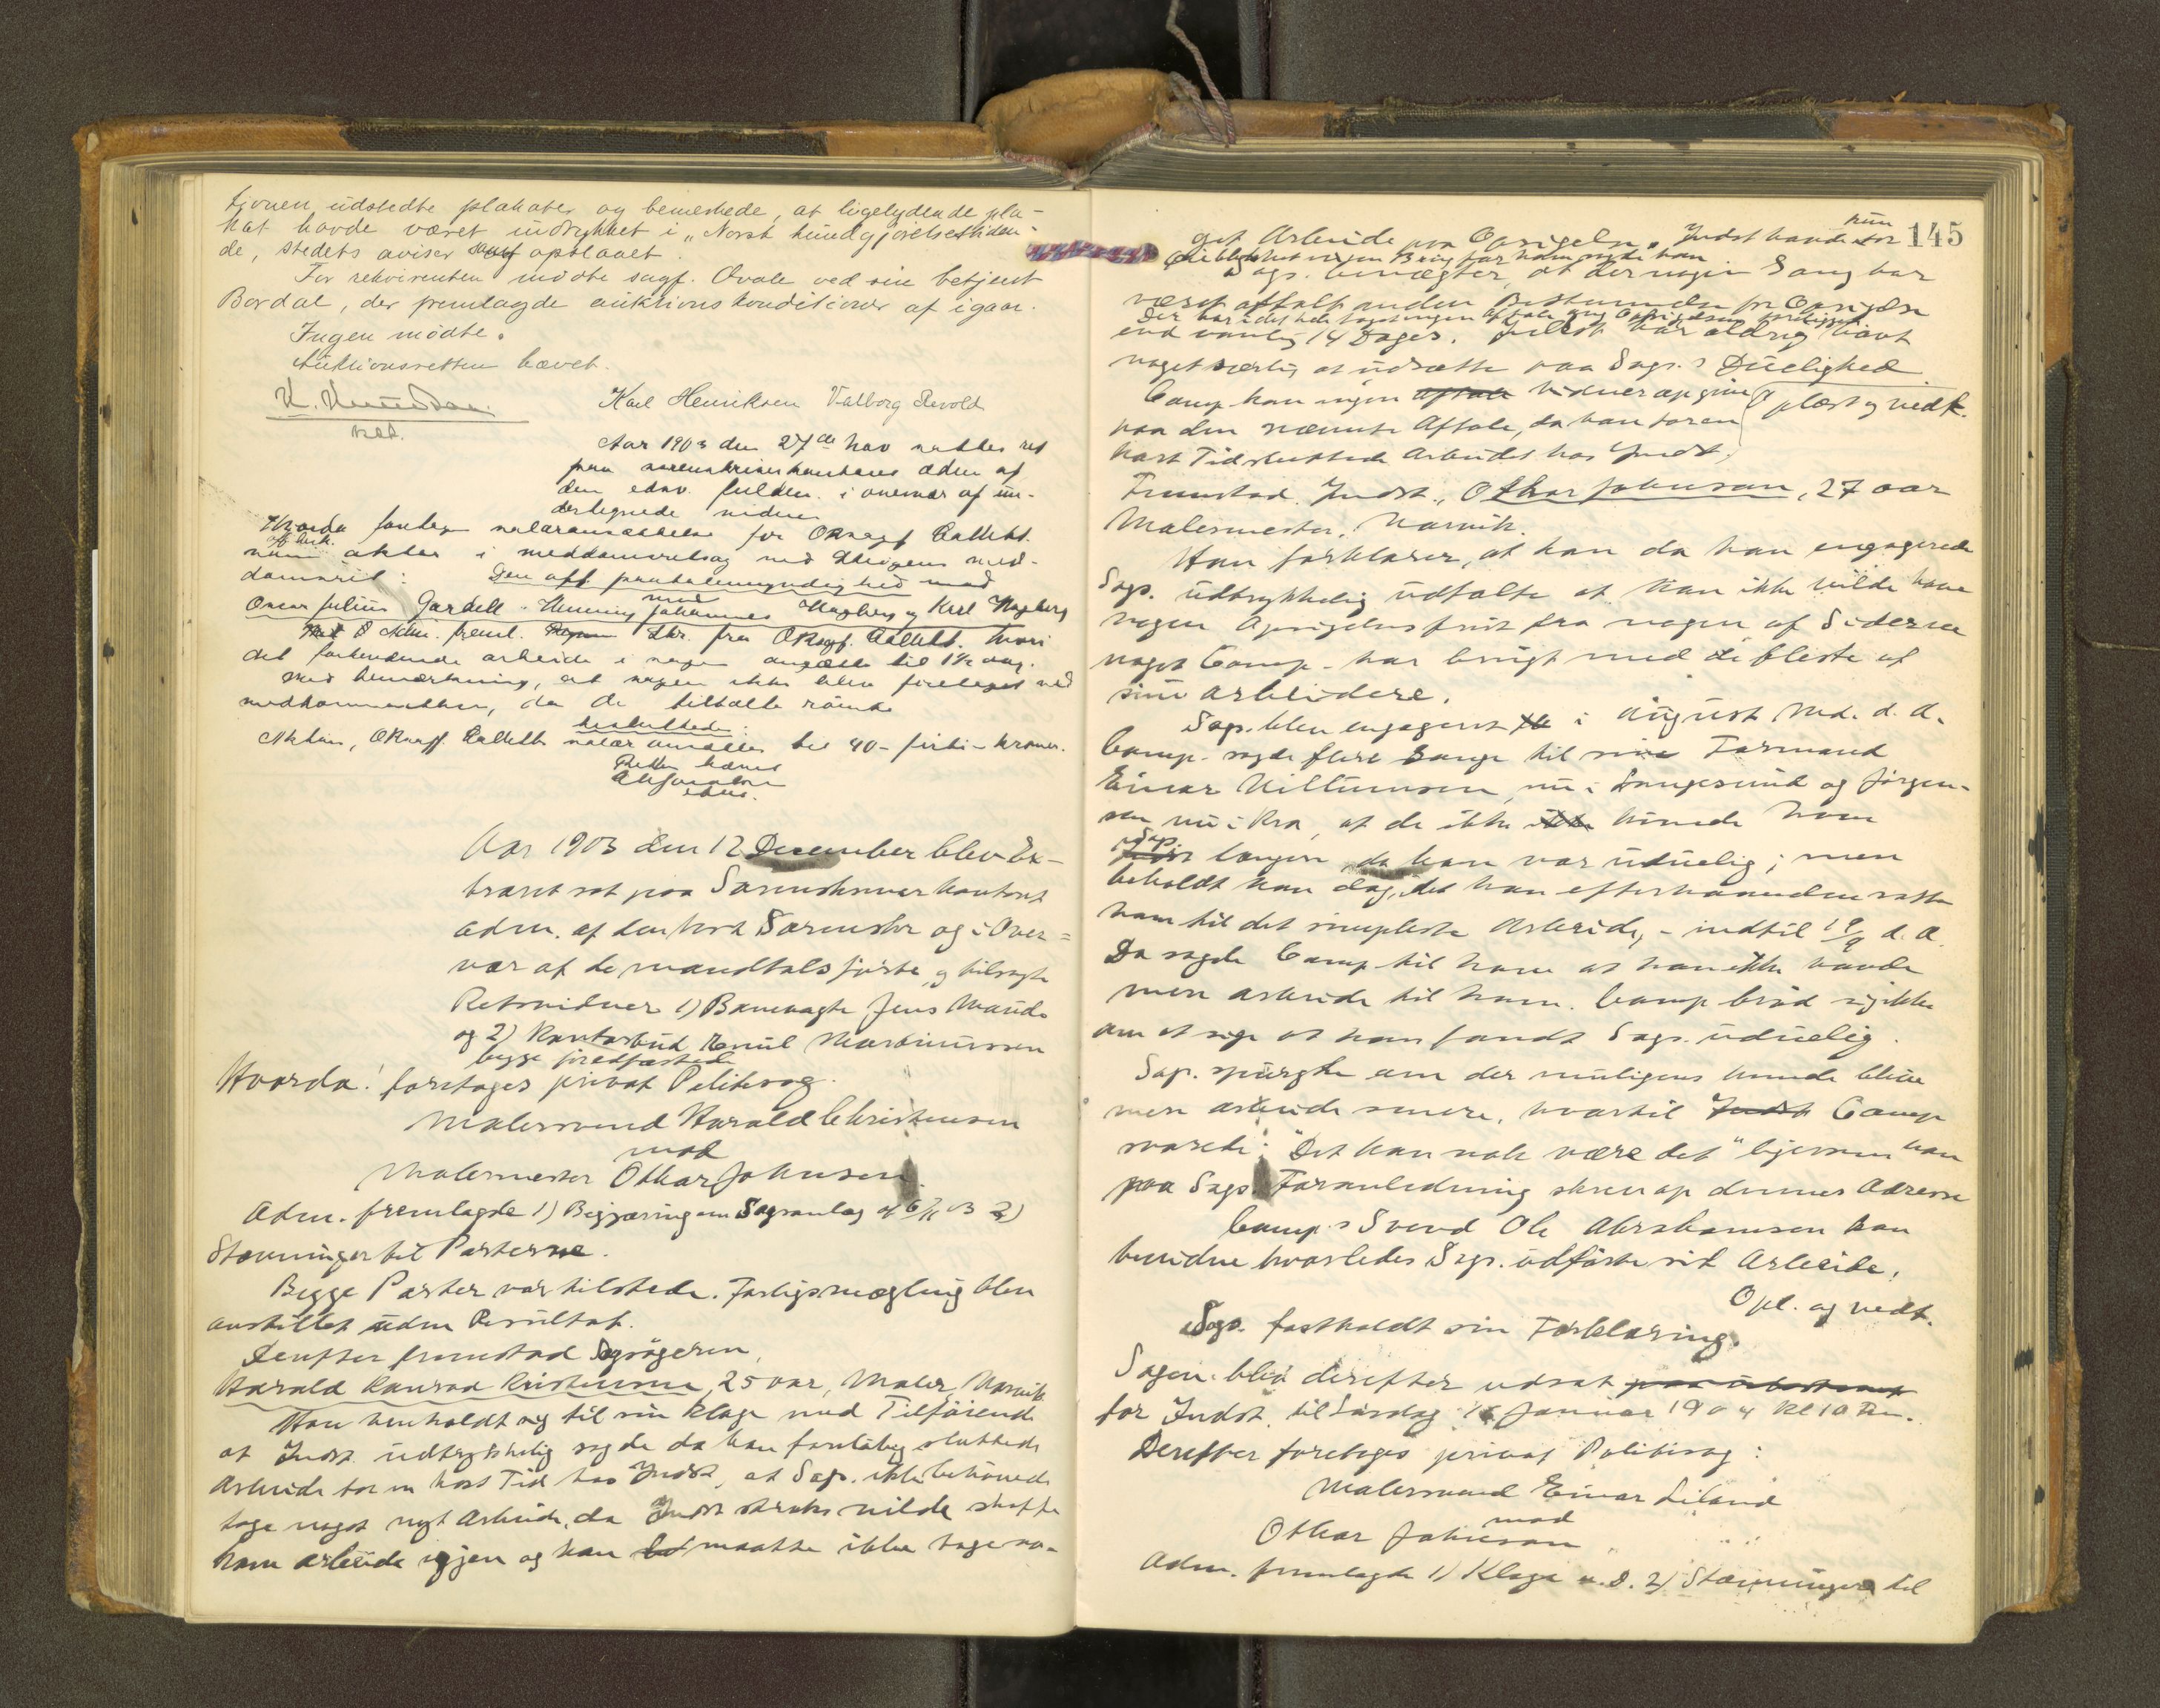 tionen udstedte plakater og bemerkede, at ligelydende pla-
kat havde været indrykket i "Norsk kundgjörelsestiden-
de, stedets aviser samt opslaaet.
For rekvirenten mödte sagf. Ovale ved sin betjent
Bordal, der fremlagde auktionskonditioner af igaar.
Ingen mödte.
Auktionsretten hævet.
Karl Henriksen Valborg Revold
Aar 1903 den 27de nov sattes ret
paa sorenskriverkontoret
den edsv. fuldm. i overvær af un-
dertegnede vidner
Hvorda foretages for ORsagf
i meddomsretssag med
Den off. paatalemyndighed mod
Oscar Julius Gardell Henning Johannes Hagberg og Karl Hagberg
fra ORsagf.
det forberedende arbeide i sagen til 1½ dag.
Med bemærkning, at sagen ikke blev foretaget ved
da de tiltalte römte
besluttedes:
til 40 - firti - kroner.
Retten hævet
Aar 1903 den 12 December blev Ex-
traret sat paa Sorenskriverkontoret
adm. af den kst Sorenskr og i Over=
vær af de mandtalsförte og tilsagte
Retsvidner 1) Banevagt Jens
og 2) Kontorbud Emil Martinussen
begge foredfæstede
Hvorda! foretages privat Politisag.
Malersvend Harald Christensen
mod
Malermester Othar Johnsen.
Adm. fremlagde 1) Begjæring om Saganlæg af 6/11 03 2)
Stævninger til Parterne.
Begge Parter var tilstede. Forligsmægling blev
anstillet uden Resultat.
Derefter fremstod Sagsögeren,
Harald Konrad Kristensen, 25 aar, Maler, Narvik
Han henholdt sig til sin Klage med Tilföiende
at Indst. udtrykkelig sagde da han foreløbig sluttede
Arbeide for en kort Tid hos Indst, at Sags. ikke behövede
tage noget nyt Arbeide, da Indst straks vilde skaffe
ham arbeide igjen og han maatte ikke tage no-
145
get Arbeide paa Opsigelse. Indst havde kun
sagde han
Sags. benægter, at der nogen Gang har
været aftalt anden Bestemmelse for Opsigelse
end vanlig 14 Dages. Indst har aldrig havt
noget særlig at udsætte paa Sags.s Duelighed
Camp kan ingen vidner opgive
oplæst og vedt.
paa den nævnte Aftale, da han for en
kort Tid sluttede Arbeidet hos Indst.
Fremstod Indst., Othar Johnsen, 27 aar
Malermester, Narvik.
Han forklarer, at han da han engagerede
Sags. udtrykkelig udtalte at han ikke vilde have
nogen Opsigelsesfrist fra nogen af Siderne
noget Camp. har brugt med de fleste af
sine arbeidere.
Sags. blev engageret i August Md. d. A.
Camp. sagde flere Gange til Formand
Einar nu i Langesund og Jörgen-
sen nu i Kra, at de ikke kunde have
Sags. længere da han var uduelig; men
beholdt ham dog, idet han efterhaanden satte
ham til det simpleste Arbeide, - indtil 19/9 d. A.
Da sagde Camp til ham at han ikke havde
mere arbeide til ham. Camp bröd sig ikke
om at sige at han fandt Sags. uduelig.
Sags. spurgte om der muligens kunde blive
mere arbeide senere, hvortil Camp
svarede: "Det kan nok være det" ligesom han
paa Sags. Foranledning skrev op dennes Adresse
Camps Svend Ole Abrahamsen kan
bevidne hvorledes Sags. udförte sit Arbeide.
Opl. og vedt.
Sags. fastholdt sin Forklaring.
Sagen blev derefter udsat
for Indst. til Lördag Januar 1904 Kl 10 Fm.
Derefter foretages privat Politisag:
Malersvend Einar Liland
mod
Othar Johnsen
Adm. fremlagde 1) Klage 2) Stævninger til